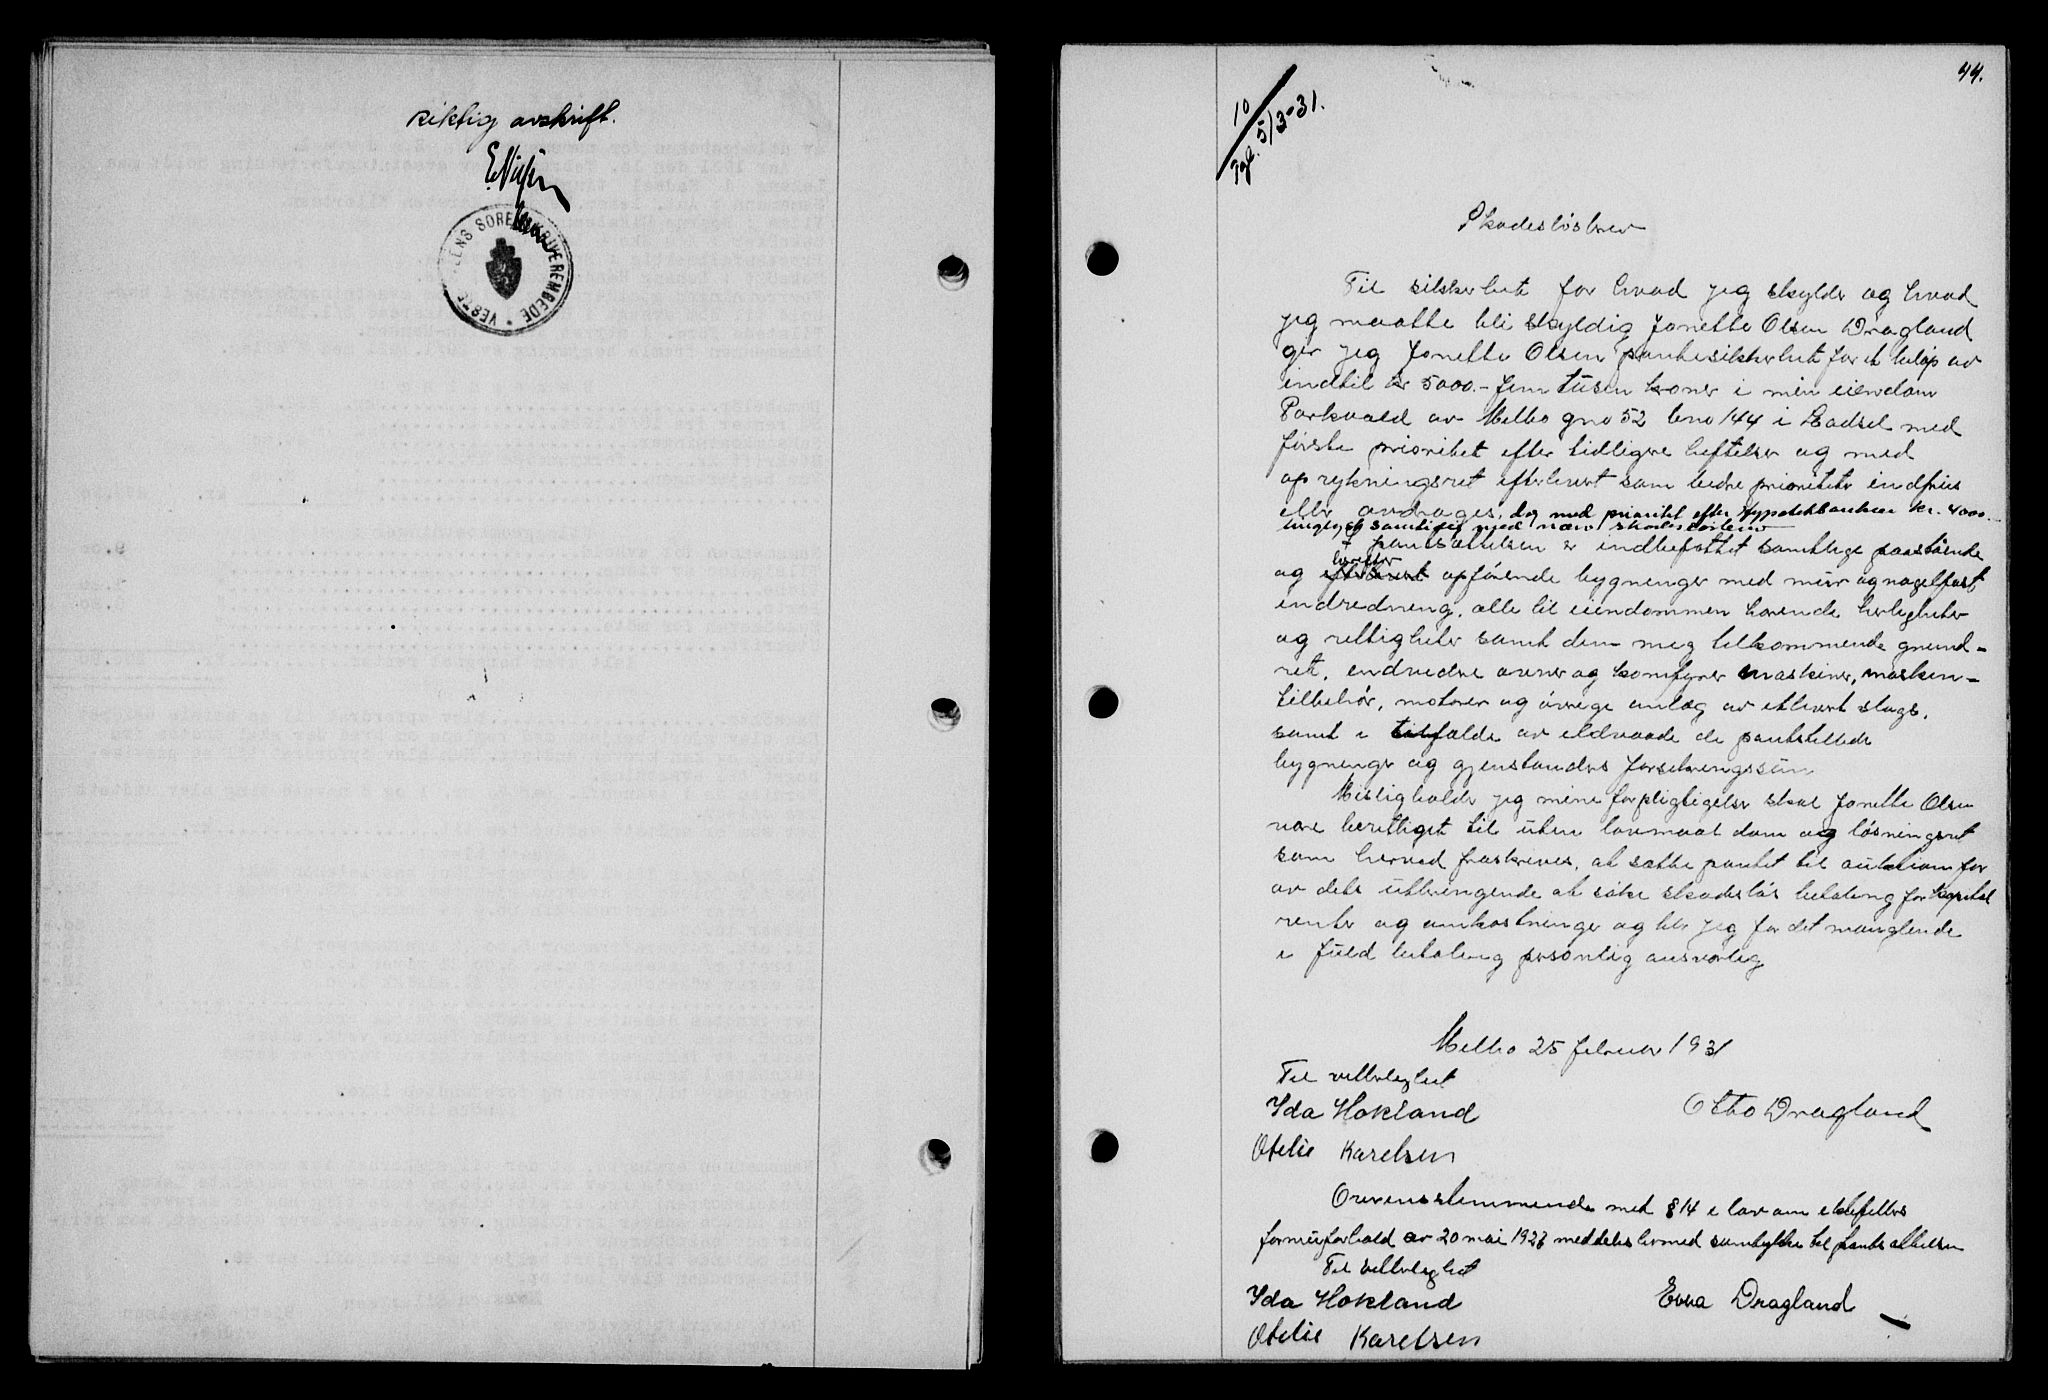 Riktig avskrift.
VESTERÅLENS SORENSKRIVEREMBEDE
44.
10
Tgl. 5/3-31.
Skadesløsbrev
Til sikkerhet for hvad jeg skylder og hvad
jeg maatte bli skyldig Jonette Olsen Dragland
gir jeg Jonette Olsen pantesikkerhet for et beløp av
indtil kr 5000.- fem tusen kroner i min eiendom
Parkvold av Melbo gno 52 bno 144 i Hadsel med
første prioritet efter tidligere heftelser og med
oprykningsret efterhvert som bedre prioriteter indfries
eller avdrages, dog med prioritet efter Hypotekbanken kr. 4000.-
tinglyst samtidig med nærv. skadesløsbrev
I pantsættelsen er indbefattet samtlige paastående
herefter
og efterhvert opførende bygninger med mur og nagelfast
indredning, alle til eiendommen hørende herligheter
og rettigheter samt den meg tilkommende grund-
ret, endvidere ovner og komfyrer maskiner, maskin-
tilbehør, motorer og øvrige anlæg av ethvert slags,
samt i tilfælde av ildvaade de pantstillede
bygninger og gjenstanders forsikringssum
Misligholder jeg mine forpligtigelser skal Jonette Olsen
være berettiget til uten lovmaal dom og løsningsret
som herved fraskrives, at sætte pantet til auktion for
av dets utbringende at søke skadesløs betaling for kapital
renter og omkostninger og blir jeg for det manglende
i fuld betaling personlig ansvarlig
Melbo 25 februar 1931
Til vitterlighet
Ida Hokland Otto Dragland
Otelie Karelsen
Overensstemmende med § 14 i lov om ektefellers
formuesforhold av 20 mai 1927 meddeles hermed samtykke til pantsættelsen
Til vitterlighet
Ida Hokland Edna Dragland
Otelie Karelsen